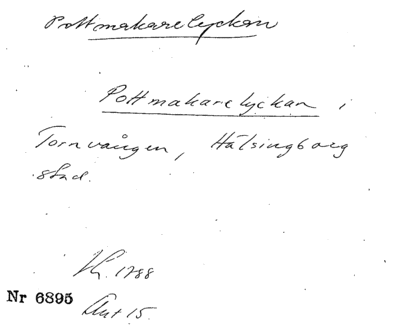 Pottmakarelyckan
Pottmakarelyckan i
Tornvången, Hälsingborg
stad.
1788
Nr 6895
Akt 15.